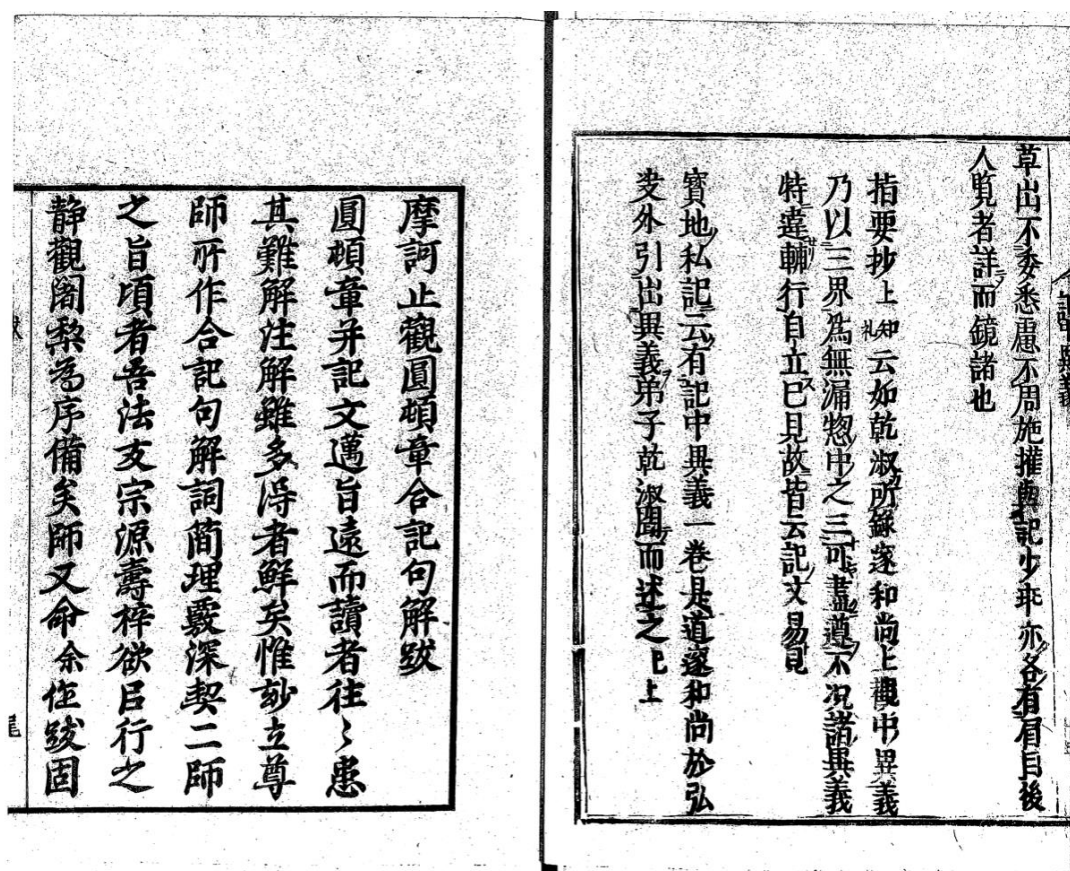 草出不委悉慮不周施攉輿記少耳亦各有眉目後
人覧者詳而鏡諸也
指要抄上知礼云如乾淑所錄邃和尚止觀中異義
乃以三界為無漏惣中之三可盡遵不况諸異義
特違輔行自立已見故皆云記文易見
寶地私記云有記中異義一卷是道邃和尚於弘
決外引出異義弟子乾淑聞而述之已上
摩訶止觀圓頓章合記句解跋
圓頓章并記文邁旨遠而讀者往〻患
其難解注解雖多得者鮮矣惟玅立尊
師所作合記句解詞簡理覈深契二師
之旨頃者吾法友宗源壽梓欲㠯行之
静觀闍梨為序備矣師又命余作跋固